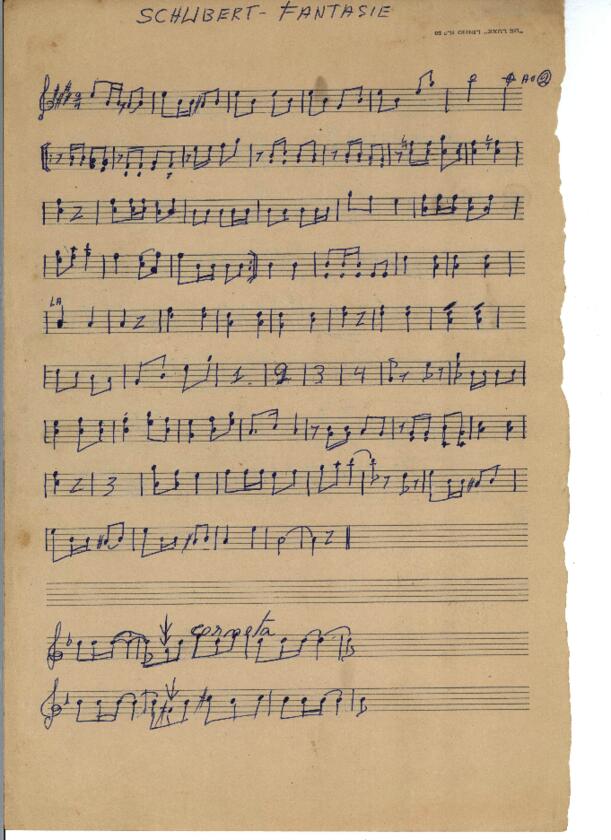 SCHUBERT - FANTASIE
"DE LUXE" LINEO N.º 50
AO 2
LA
1 2 3 4
3
corneta